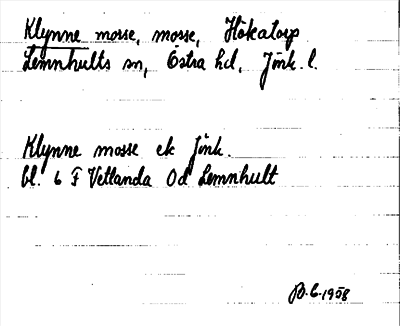 Klynne mosse, mosse, Hökatorp
Lemnhults sn, Östra hd, Jönk. l.
Klynne mosse ek Jönk.
bl. 6 F Vetlanda Od Lemnhult
B.E. 1958